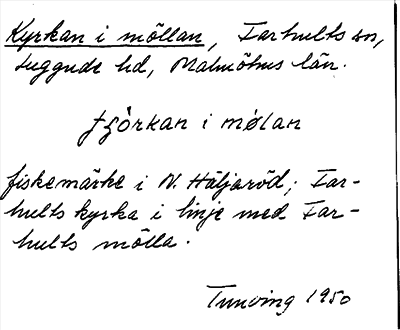 Kyrkan i möllan, Farhults sn,
Luggude hd, Malmöhus län.
fiskemärke i N. Häljaröd; Far-
hults kyrka i linje med Far-
hults mölla.
Tunving 1950